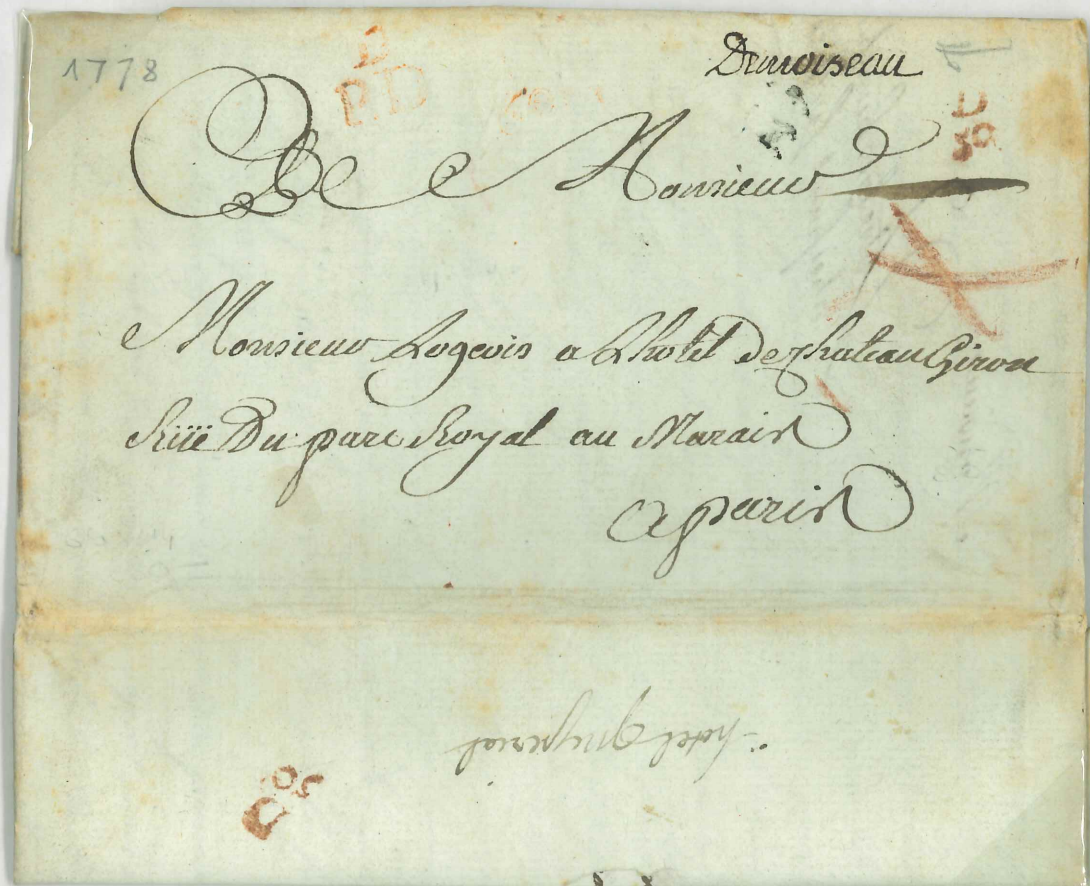 1778
Demoiseau
BD
A Monsieur
Monsieur Logeois a Lhotel De chateauGiron
Rüe Du parc Royal au Marais
a paris
hotel
D